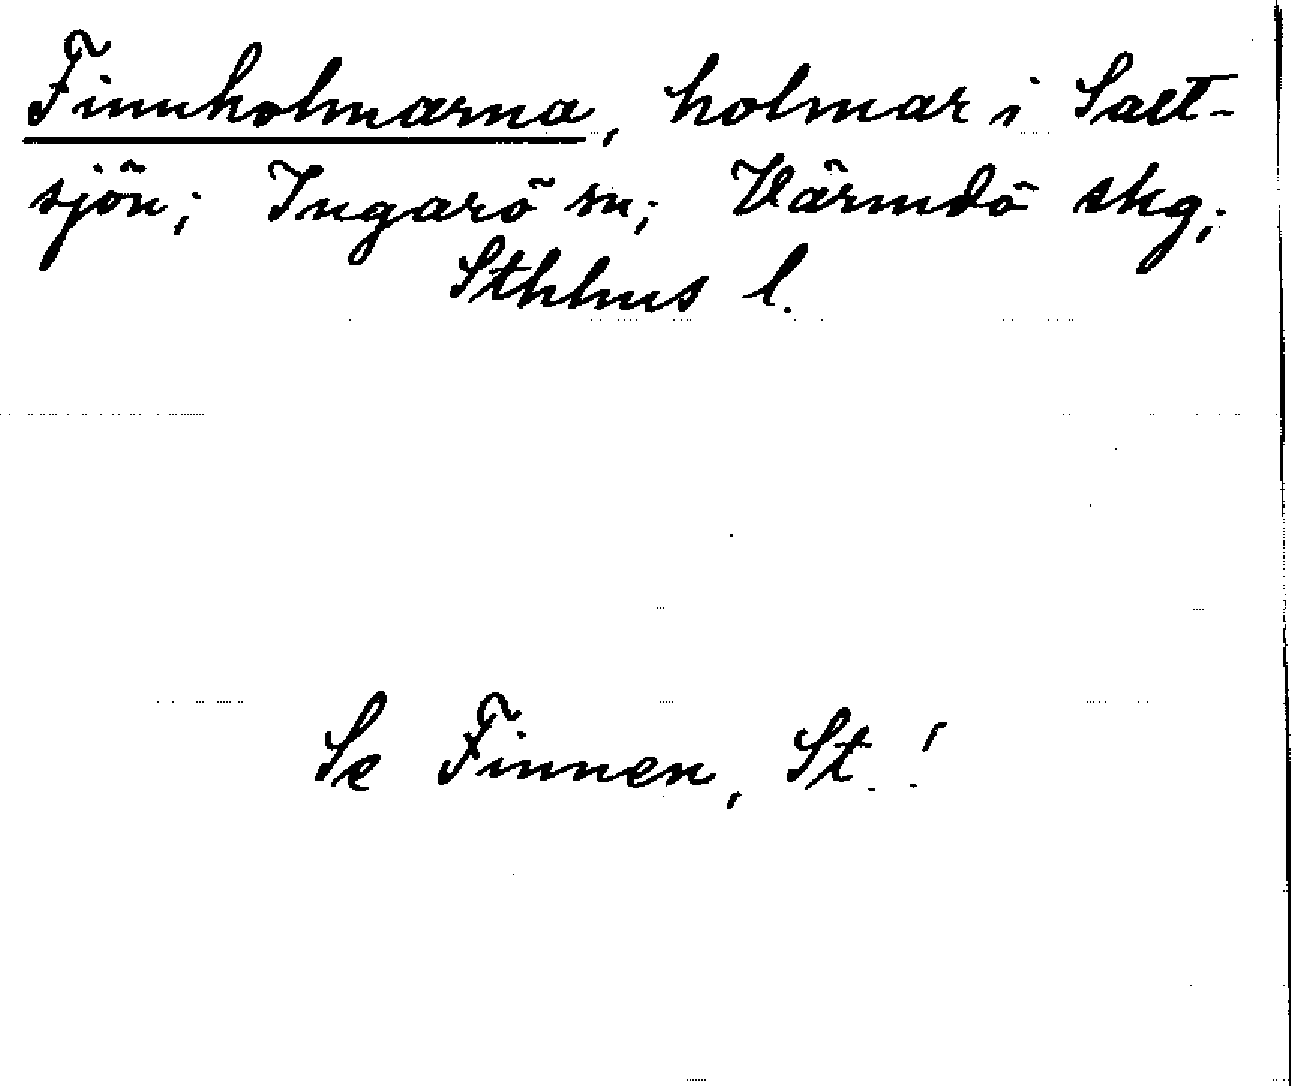 Finnholmarna, holmar i Salt-
sjön; Ingarö sn; Värmdö skg;
Sthlms l.
Se Finnen, St.!